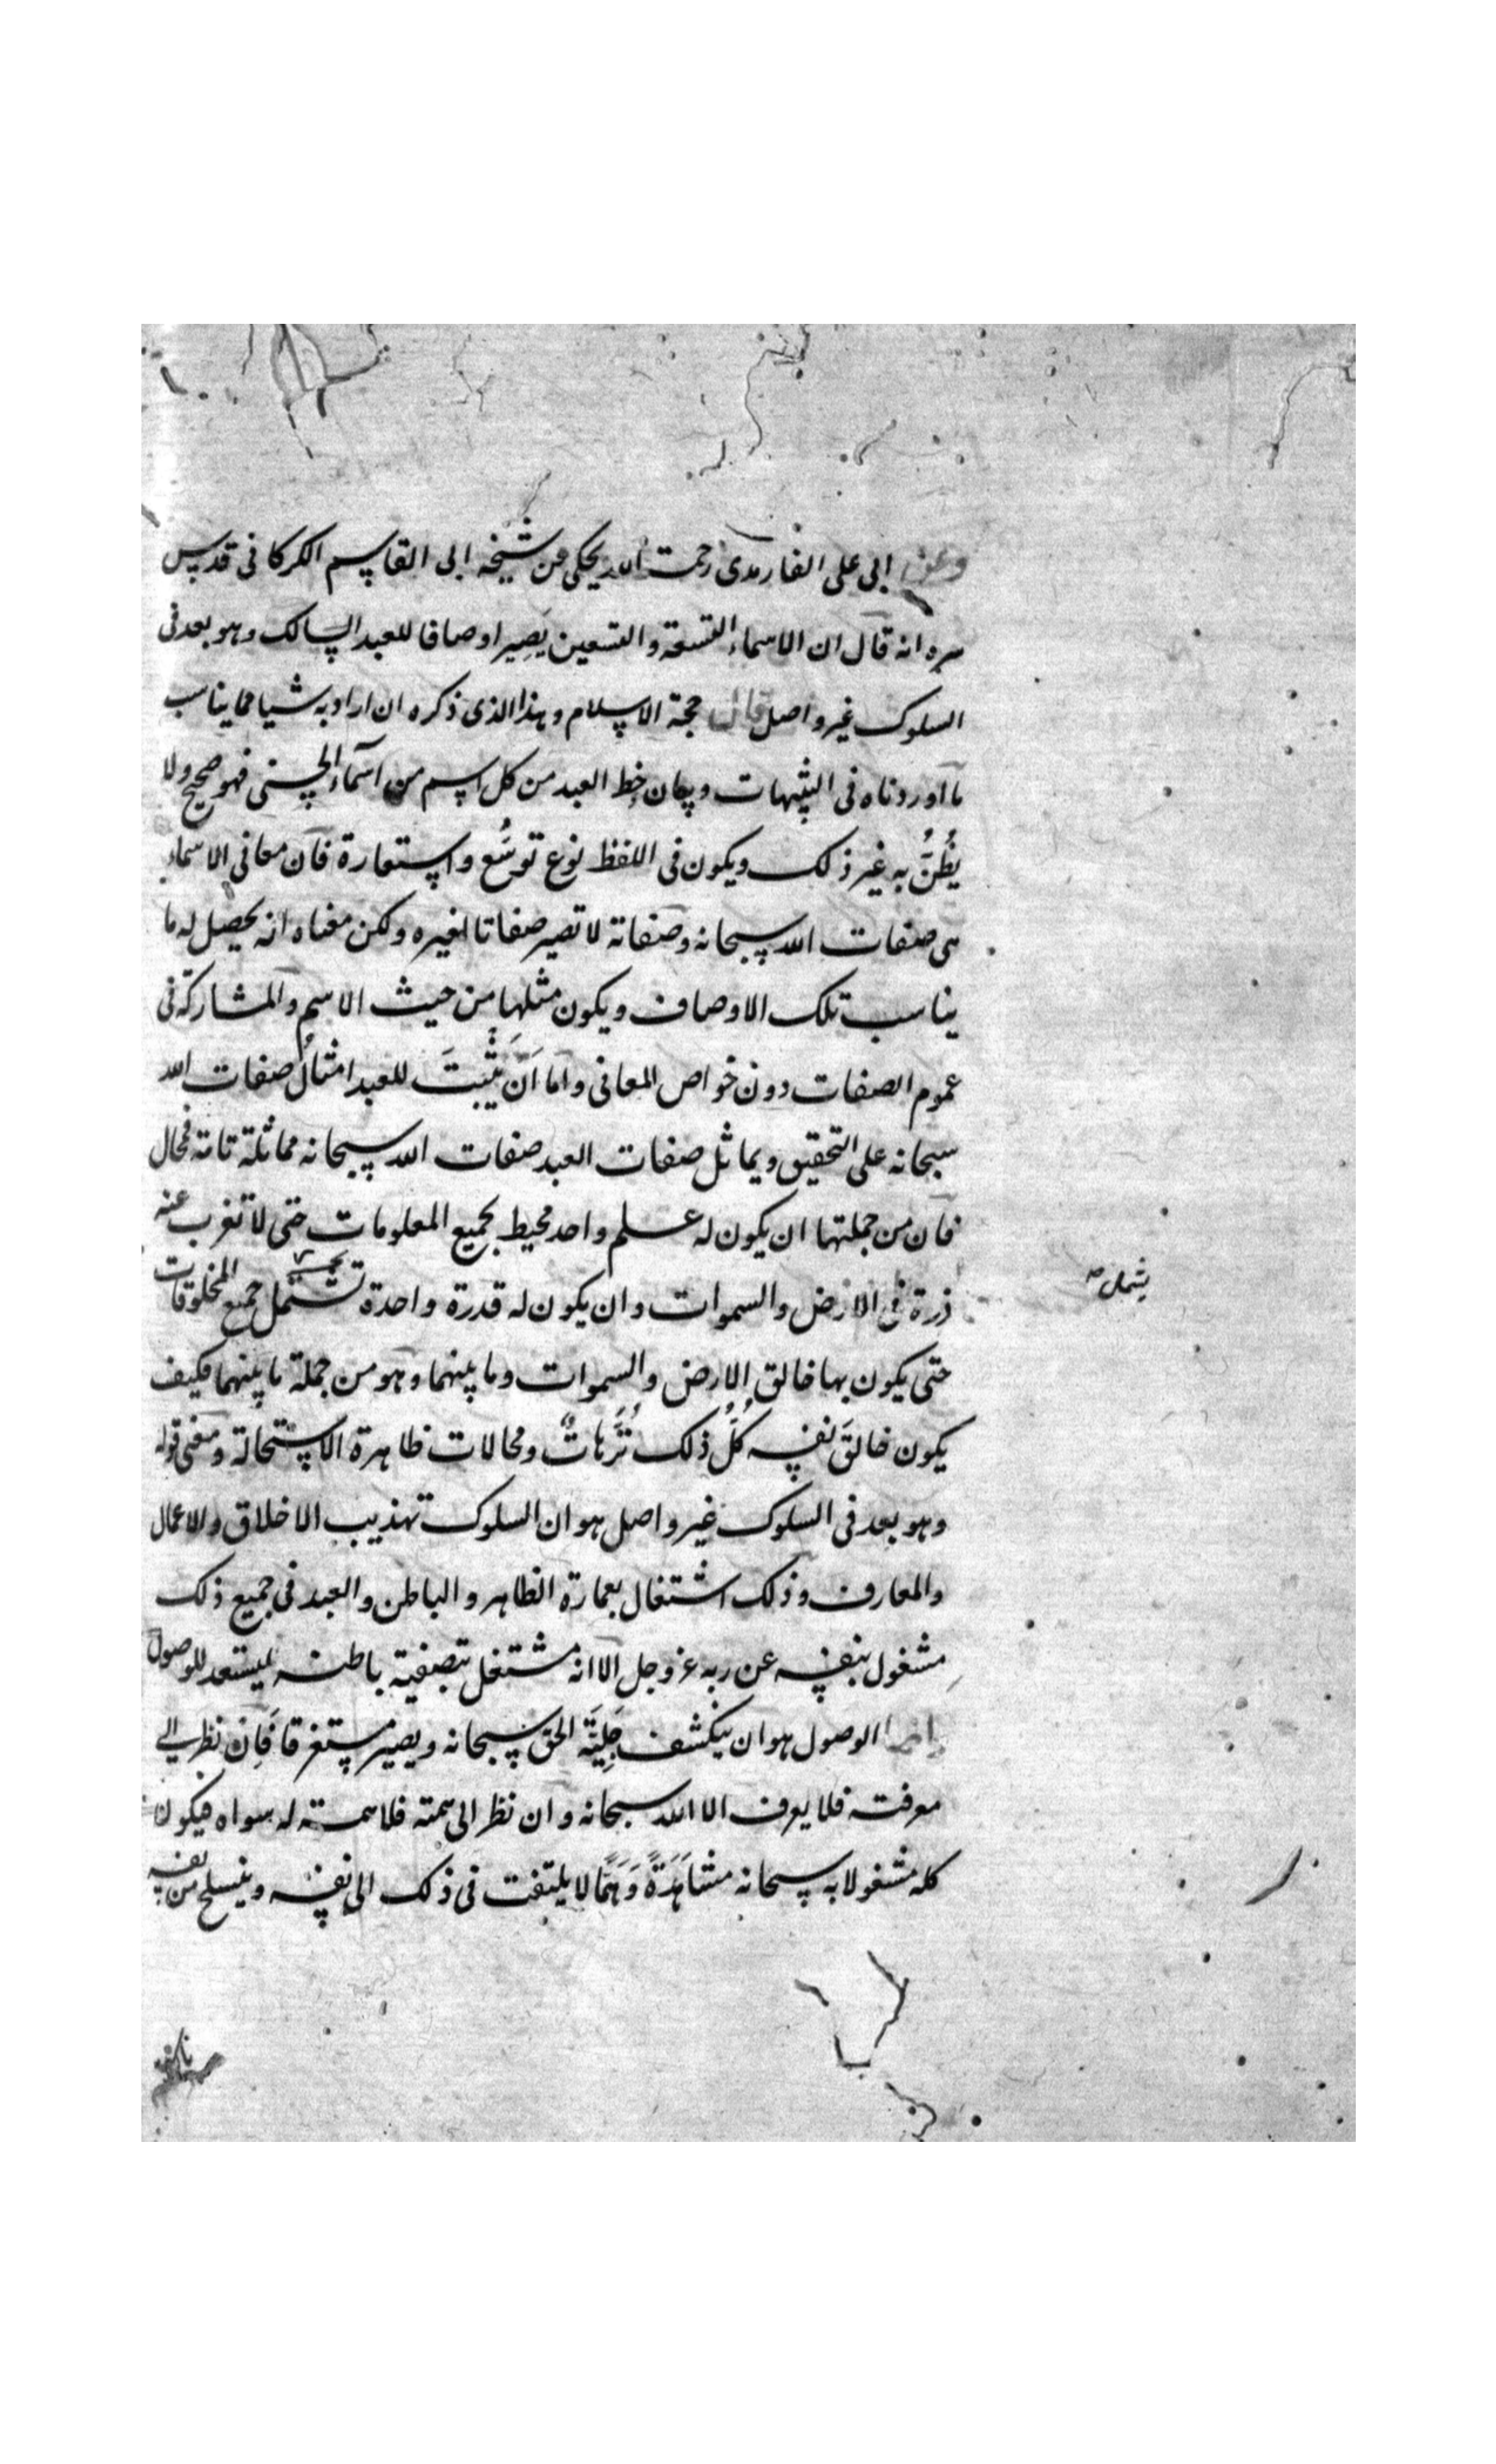 وعن ابى على الفارمدى رحمت الله يحكى عن شيخه ابى القاسم الكركانى قدس
سره انه قال ان الاسماء التسعة والتسعين يَصِير اوصافا للعبد السالك وهو بعد فى
السلوك غير واصل قال حجة الاسلام وهذا الذى ذكره ان اراد به شيا مما يناسب
ما اوردناه فى التنبيهات وبيان حظ العبد من كل اسم من اسماء الحسنى فهو صحيح ولا
يُظَنُّ به غير ذلك ويكون فى اللفظ نوع توسُّع واستعارة فان معانى الاسماء
هى صفات الله سبحانه وصفاته لا تصير صفاتا لغيره ولكن معناه انه يحصل له ما
يناسب تلك الاوصاف ويكون مثلها من حيث الاسم والمشاركة فى
عموم الصفات دون خواص المعانى واما اَنْ يَثْبِتَ للعبد امثالُ صفات الله
سبحانه على التحقيق ويماثل صفات العبد صفات الله سبحانه مماثلة تامة فمحال
فان من جملتها ان يكون له علم واحد محيط بجميع المعلومات حتى لا تغرب عنه
ذرة فى الارض والسموات وان يكون له قدرة واحدة تشتمل جميع المخلوقات
يشمل صـ
حتى يكون بها خالق الارض والسموات وما بينهما وهو من جملة ما بينهما فكيف
يكون خالقَ نفسه كُلُّ ذلك تُرَّهاتٌ ومحالات ظاهرة الاستحالة ومعنى قوله
وهو بعد فى السلوك غير واصل هو ان السلوك تهذيب الاخلاق والاعمال
والمعارف وذلك اشتغال بعمارة الظاهر والباطن والعبد فى جميع ذلك
مشغول بنفسه عن ربه عز وجل الا انه مشتغل بتصفية باطنه ليستعد للوصول
وانما الوصول هو ان ينكشف جَلِيَّة الحق سبحانه ويصير مستغرقا فَاِن نظر الى
معرفته فلا يعرف الا الله سبحانه وان نظر الى همته فلا همته له سواه فيكون
كله مشغولا به سبحانه مشاهَدَةً وَهَمًّا لا يلتفت فى ذلك الى نفسه وينسلخ من نفسه